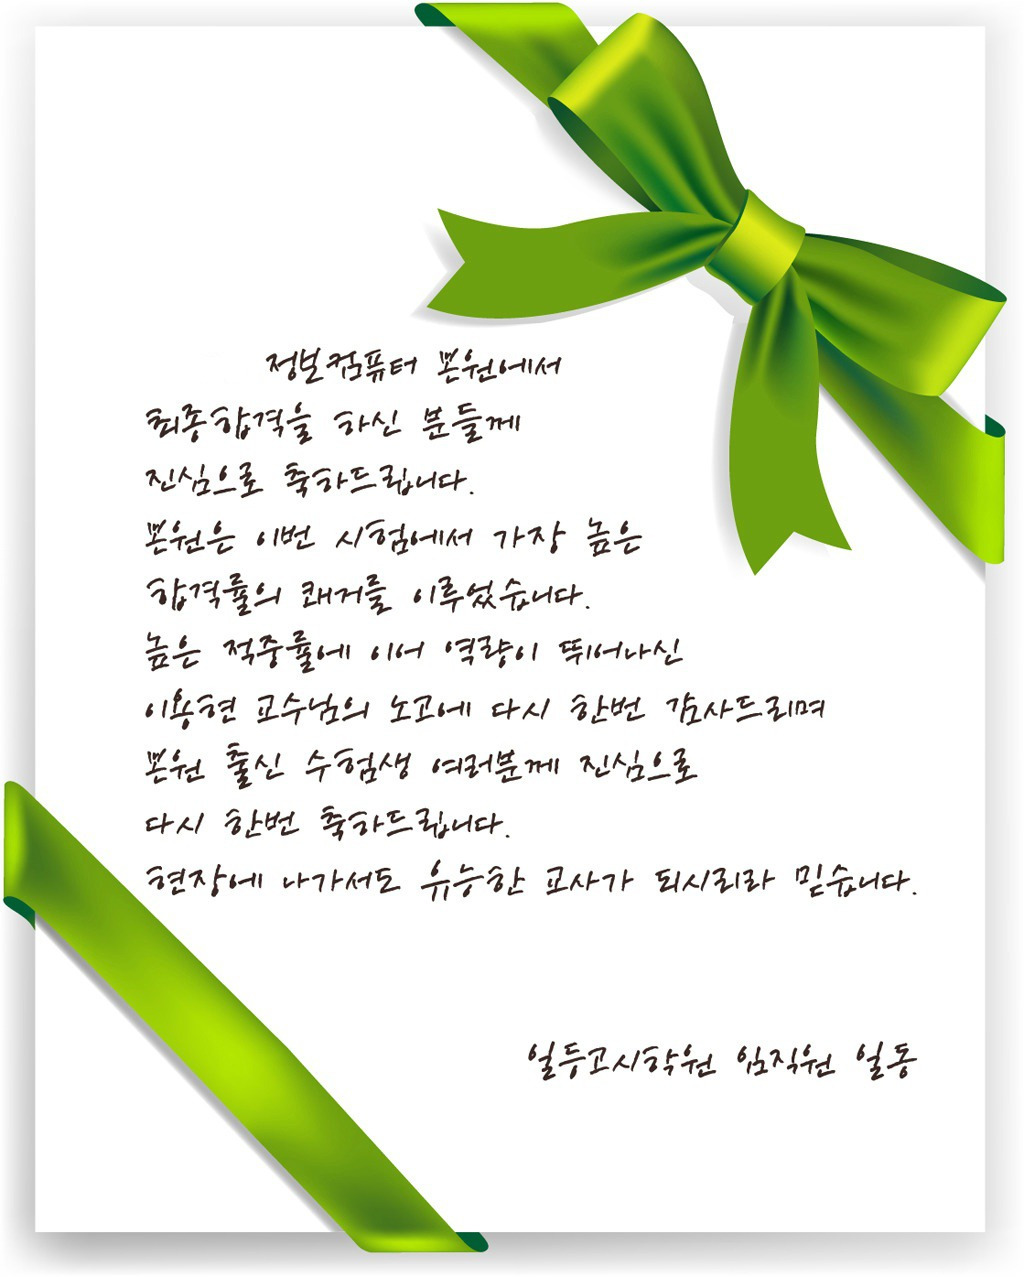 정보컴퓨터 본원에서
최종합격을 하신 분들께
진심으로 축하드립니다.
본원은 이번 시험에서 가장 높은
합격률의 쾌거를 이루었습니다.
높은 적중률에 이어 역량이 뛰어나신
이용현 교수님의 노고에 다시 한번 감사드리며
본원 출신 수험생 여러분께 진심으로
다시 한번 축하드립니다.
현장에 나가서도 유능한 교사가 되시리라 믿습니다.
일등고시학원 임직원 일동